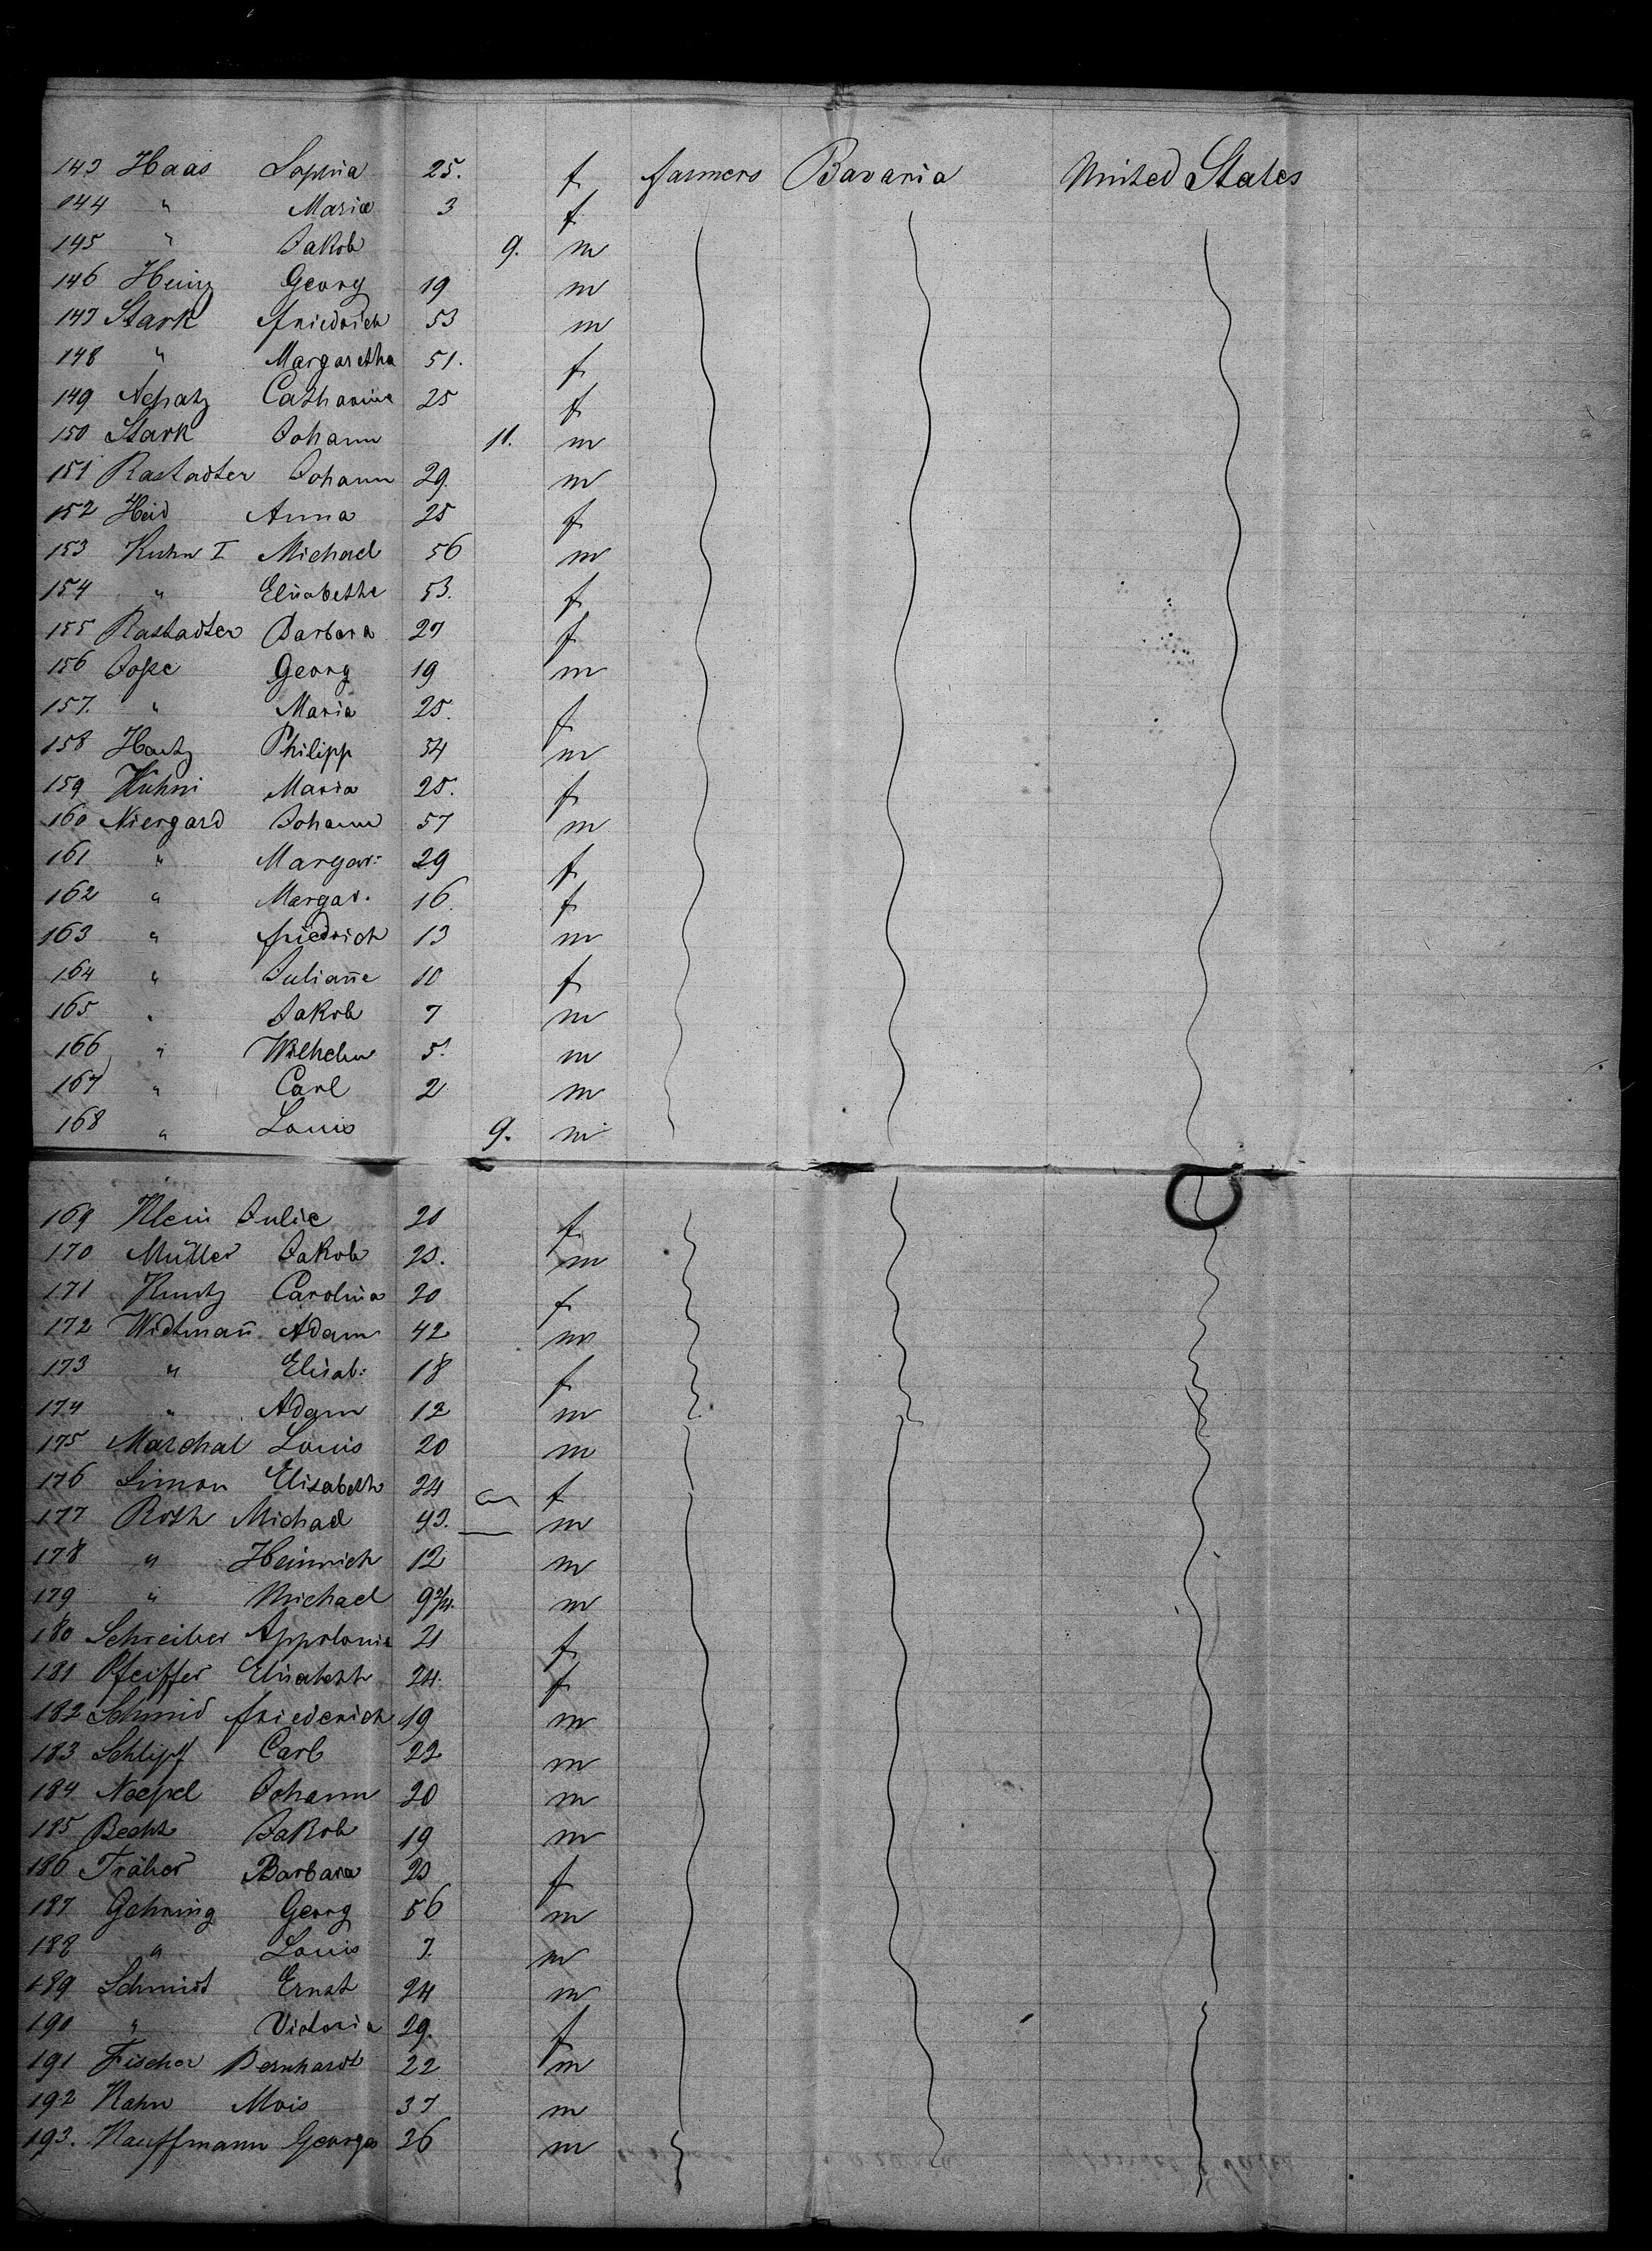 143 Haas Sophia 25. f farmers Bavaria United States
144 " Maria 3 f
145 " Jakob 9. m
146 Heinz Georg 19 m
147 Stark Friedrich 53 m
148 " Margaretha 51. f
149 Catharina 25 f
150 Stark Johann 11. m
151 Rastadter Johann 29. m
152 Heid Anna 25 f
153 Kuhn I Michael 56 m
154 " Elisabetha 53. f
155 Rastadter Barbara 27 f
156 Georg 19 m
157. " Maria 25. f
158 Philipp 54 m
159 Kuhni Maria 25. f
160 Niergard Johann 57 m
161 " Margar: 29 f
162 " Margar. 16. f
163 " Friedrich 13 m
164 " Julian̄e 10 f
165 " Jakob 7 m
166 " Wilhelm 5. m
167 " Carl 2 m
168 " Louis 9. m
169 Klein Julie 20 f
170 Müller Jakob m
171 Kuntz Carolina 20 f
172 Widtman̄ Adam 42 m
173 " Elisab: 18 f
174 " Adam 12 m
175 Marchal Louis 20 m
176 Simon Elisabeth 24 f
177 Roth Michael 43. m
178 " Heinrich 12 m
179 " Michael m
180 Schreiber Appolonia 21 f
181 Pfeiffer Elisabeth 24. f
182 Schmid Friederich 19 m
183 Schlipf Carl 22 m
184 Johann 20 m
185 Becht Jakob 19 m
186 Träher Barbara f
187 Gehring Georg 56 m
188 " Louis 7. m
189 Schmidt Ernst 24 m
190 " Victoria 29. f
191 Fischer Bernhardt 22 m
192 Kahn Mois 37 m
193. Kauffmann Georges 26 m